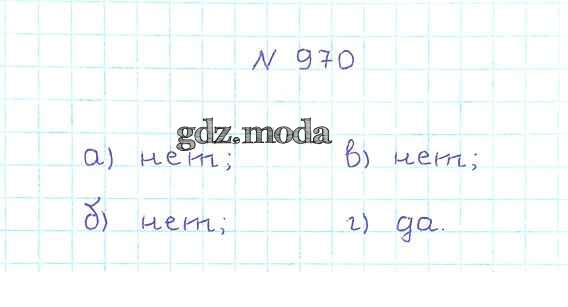 N 970
gdz.moda
а) нет; в) нет;
б) нет; г) да.